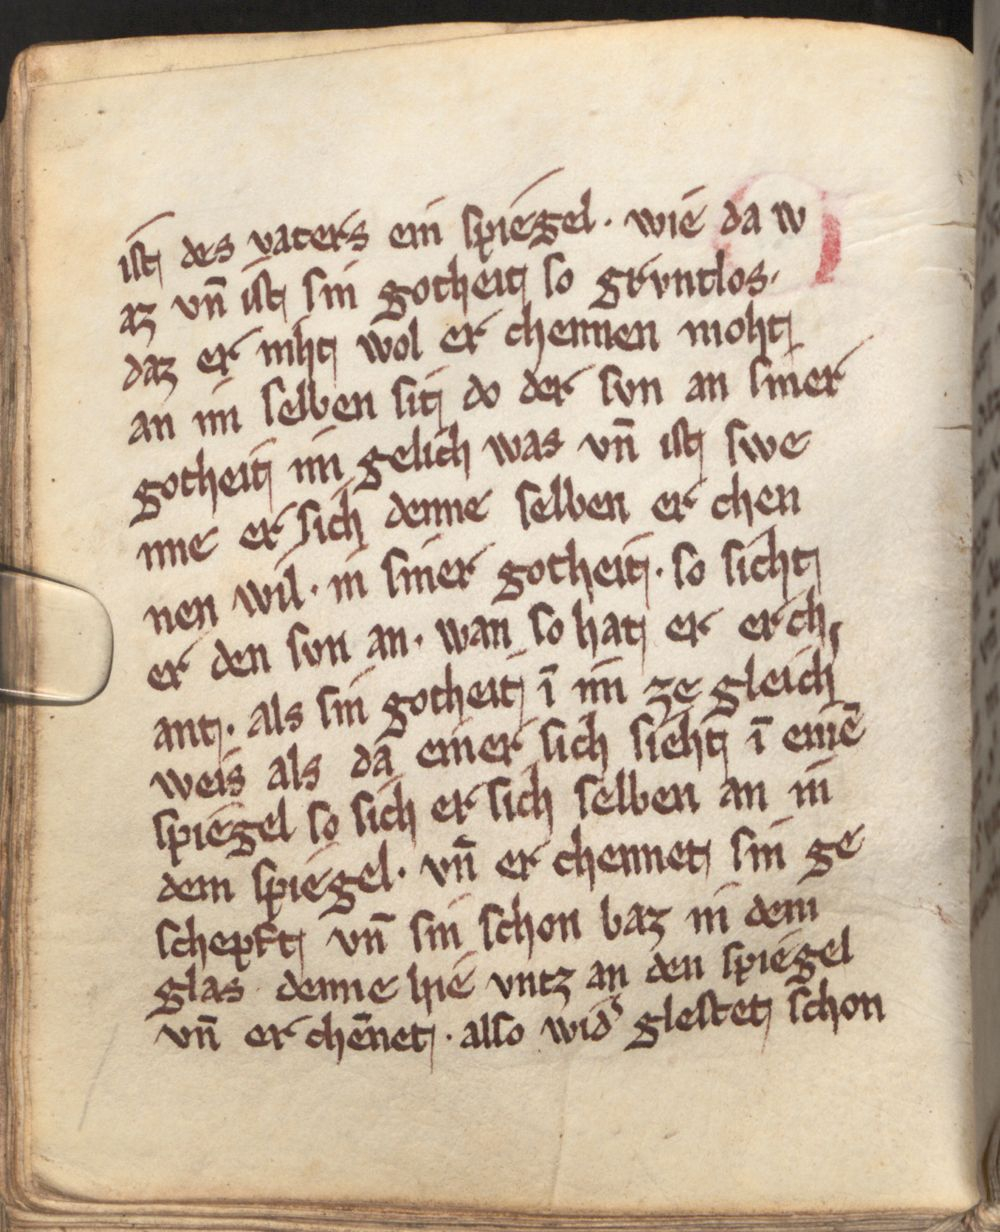 ist des vaters ein spiegel · wie da w
az vn̄ ist sin gotheit so grvntlos·
daz er niht wol er chennen moht
an im selben sit do der svn an siner
gotheit im gelich was vn̄ ist swe
nne er sich denne selben er chen
nen wil · in siner gotheit · so sicht
er den svn an · wan so hat er erch
ant · als sin gotheit ī im ze gleich
weis als da einer sich sieht ī einē
spiegel so sich er sich selben an in
dem spiegel · vn̄ er chennet sin ge
schepft vn̄ sin schon baz in dem
glas denne hie vntz an den spiegel
vn̄ er chēnet · also wid᾽ glestet schon